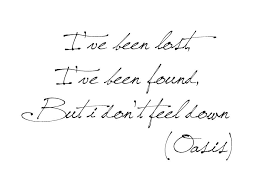 I've been lost,
I've been found,
But i don't feel down
(Oasis)